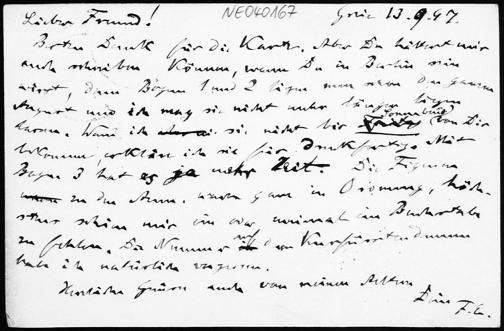 Lieber Freund! NE040167 Graz 13.9.97.
Besten Dank für die Karte. Aber Du hättest mir
auch schreiben können, wann Du in Berlin sein
wirst, denn Bogen 1 und 2 liegen nun schon den ganzen
August und ich mag sie nicht mehr länger liegen
lassen. Wenn ich sie nicht bis von Dir
bekomme, erkläre ich sie für druckfertig. Mit
Bogen 3 hat es ja mehr Zeit. Die Figuren
zu den Anm. waren ganz in Ordnung, höch-
stens schien mir ein oder zweimal ein Buchstabe
zu fehlen. Die Nummer des Kurfürstendamm
habe ich natürlich vergessen.
Herzliche Grüsse auch von meinen Alten
Dein F. E.